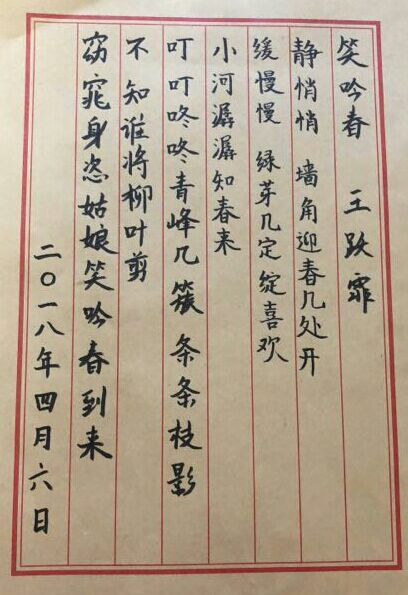 笑吟春 王跃霏
静悄悄 墙角迎春几处开
缓慢慢 绿芽几定绽喜欢
小河潺潺知春来
叮叮咚咚青峰几簇条条枝影
不知谁将柳叶剪
窈窕身恣姑娘笑吟春到来
二〇一八年四月六日